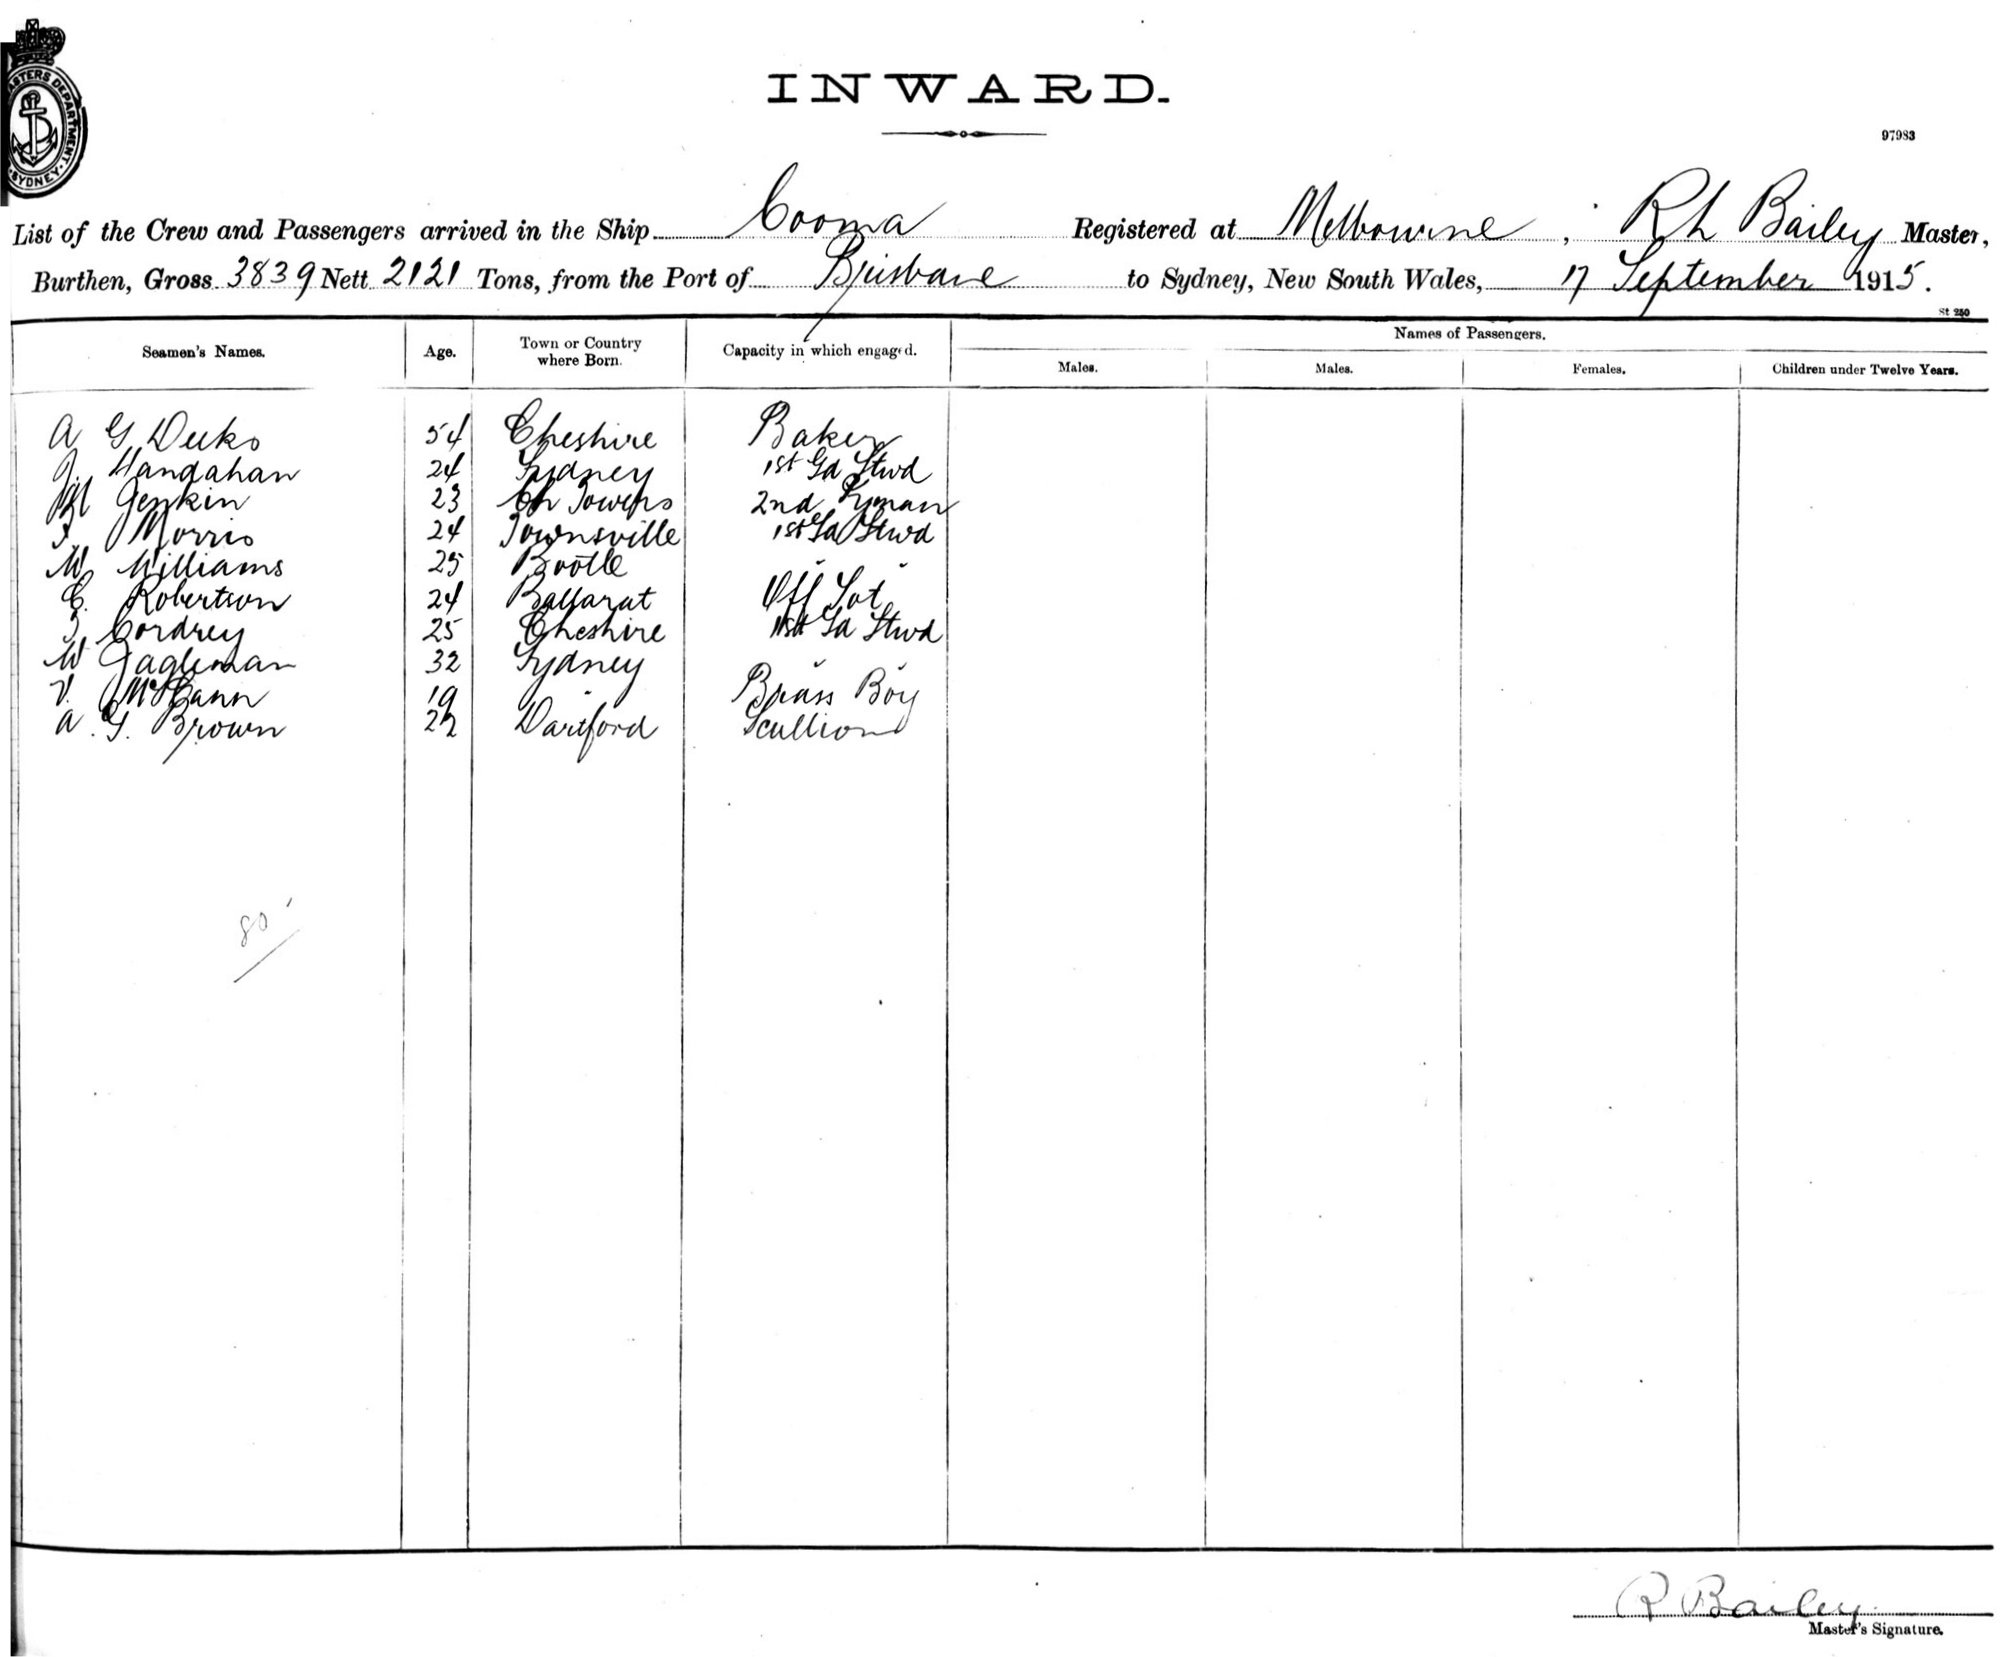 MASTERS DEPARTMENT SYDNEY
INWARD.
97983
List of the Crew and Passengers arrived in the Ship Cooma Registered at Melbourne ; Master,
Bailey
Burthen, Gross 3839 Nett 2121 Tons, from the Port of Brisbane to Sydney, New South Wales, 17 September 1915.
St 250
Seamen's Names. Age. Town or Country where Born. Capacity in which engaged. Names of Passengers.
Males. Males. Females. Children under Twelve Years.
A G 54 Cheshire Baker
J. Handahan 24 Sydney 1st Gd Stwd
Jenkin 23 Ch Towers 2nd
Morris 24 Townsville 1st Gd Stwd
W Williams 25 Bootle " "
C. Robertson 24 Ballarat Off
Cordrey 25 Cheshire 1st Gd Stwd
W 32 Sydney " "
V. McCann 19 " Brass Boy
A. G. Brown 22 Dartford Scullion
80
R Bailey
Master's Signature.